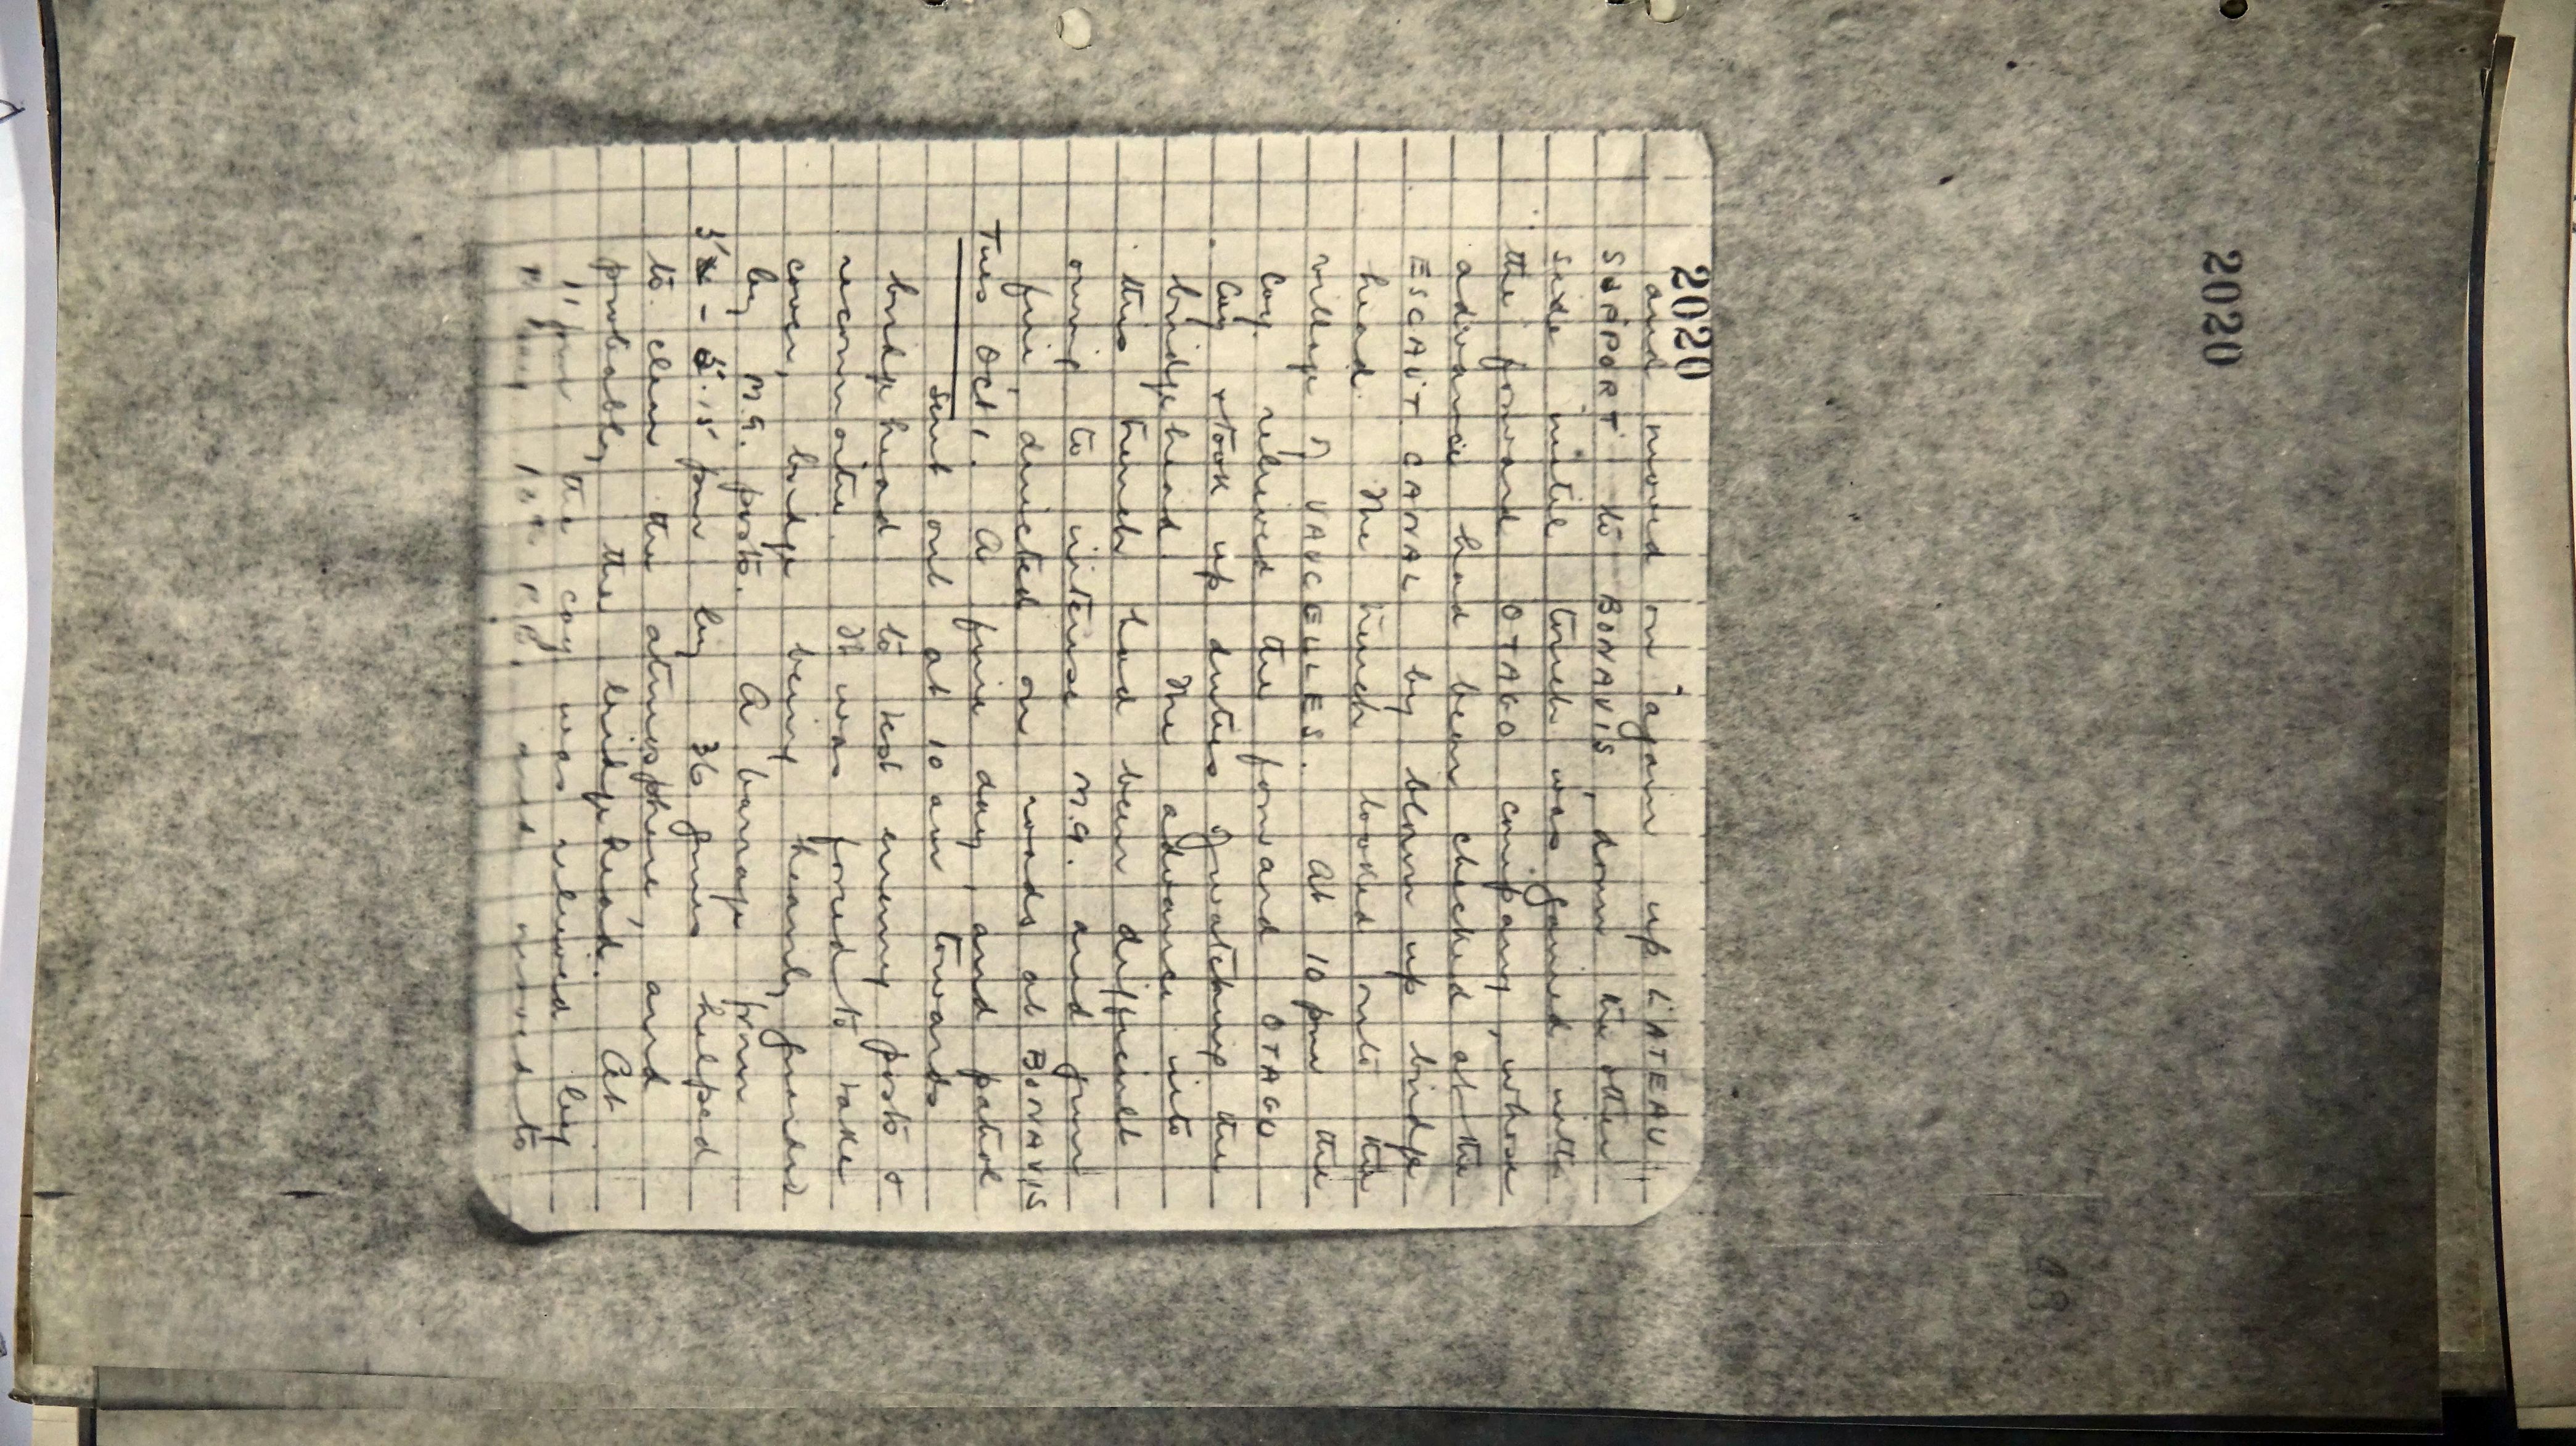 2020
2020
and moved on again up LATEAU
SUPPORT to BONAVIS, down the other
side until touch was gained with
the forward OTAGO company, whose
advance had been checked at the
ESCAUT CANAL by blown up bridge
head. The trench looked onto the
village of VAUCELLES. At 10 pm the
Coy. relieved the forward OTAGO
Coy & took up duties of watching the
bridgehead. The advance into
this trench had been difficult
owing to intense M.G. and gun
fire, directed on roads at BONAVIS
Tues Oct 1. A fine day, and patrol
sent out at 10 am towards
bridge head to test enemy posts &
reconnoitre. It was forced to take
cover, bridge being heavily guarded
by M.G. posts. A barrage from
5 - 5.15 pm by 36 guns helped
to clear the atmosphere, and
probably the bridgehead. At
11 pm the coy was relieved by
and moved to